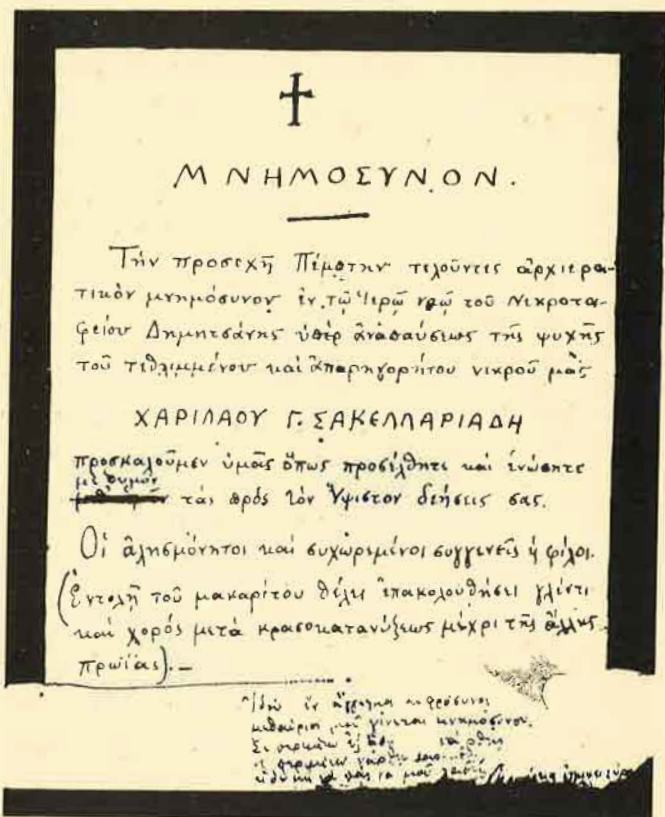 ΜΝΗΜΟΣΥΝΟΝ.
Τήν προσεχῆ Πέμπτην τελοῦντες ἀρχιερα-
τικόν μνημόσυνον ἐν τῷ Ἱερῷ ναῷ τοῦ Νεκροτα-
φείου Δημητσάνης ὑπέρ ἀναπαύσεως τῆς ψυχῆς
τοῦ τεθλιμμένου καί ἀπαρηγορήτου νεκροῦ μας
ΧΑΡΙΛΑΟΥ Γ. ΣΑΚΕΛΛΑΡΙΑΔΗ
προσκαλοῦμεν ὑμᾶς ὅπως προσέλθητε καί ἑνώσητε
μέ θυμόν
τάς πρός τόν Ὕψιστον δεήσεις σας.
Οἱ ἀλησμόνητοι καί συχωρεμένοι συγγενεῖς ἤ φίλοι.
(Ἐντολῇ τοῦ μακαρίτου θέλει ἐπακολουθήσει γλέντι
καί χορός μετά κρασοκατανύξεως μέχρι τῆς ἄλλης
πρωΐας).—
μεθαύριο μοῦ γίνεται μνημόσυνο.